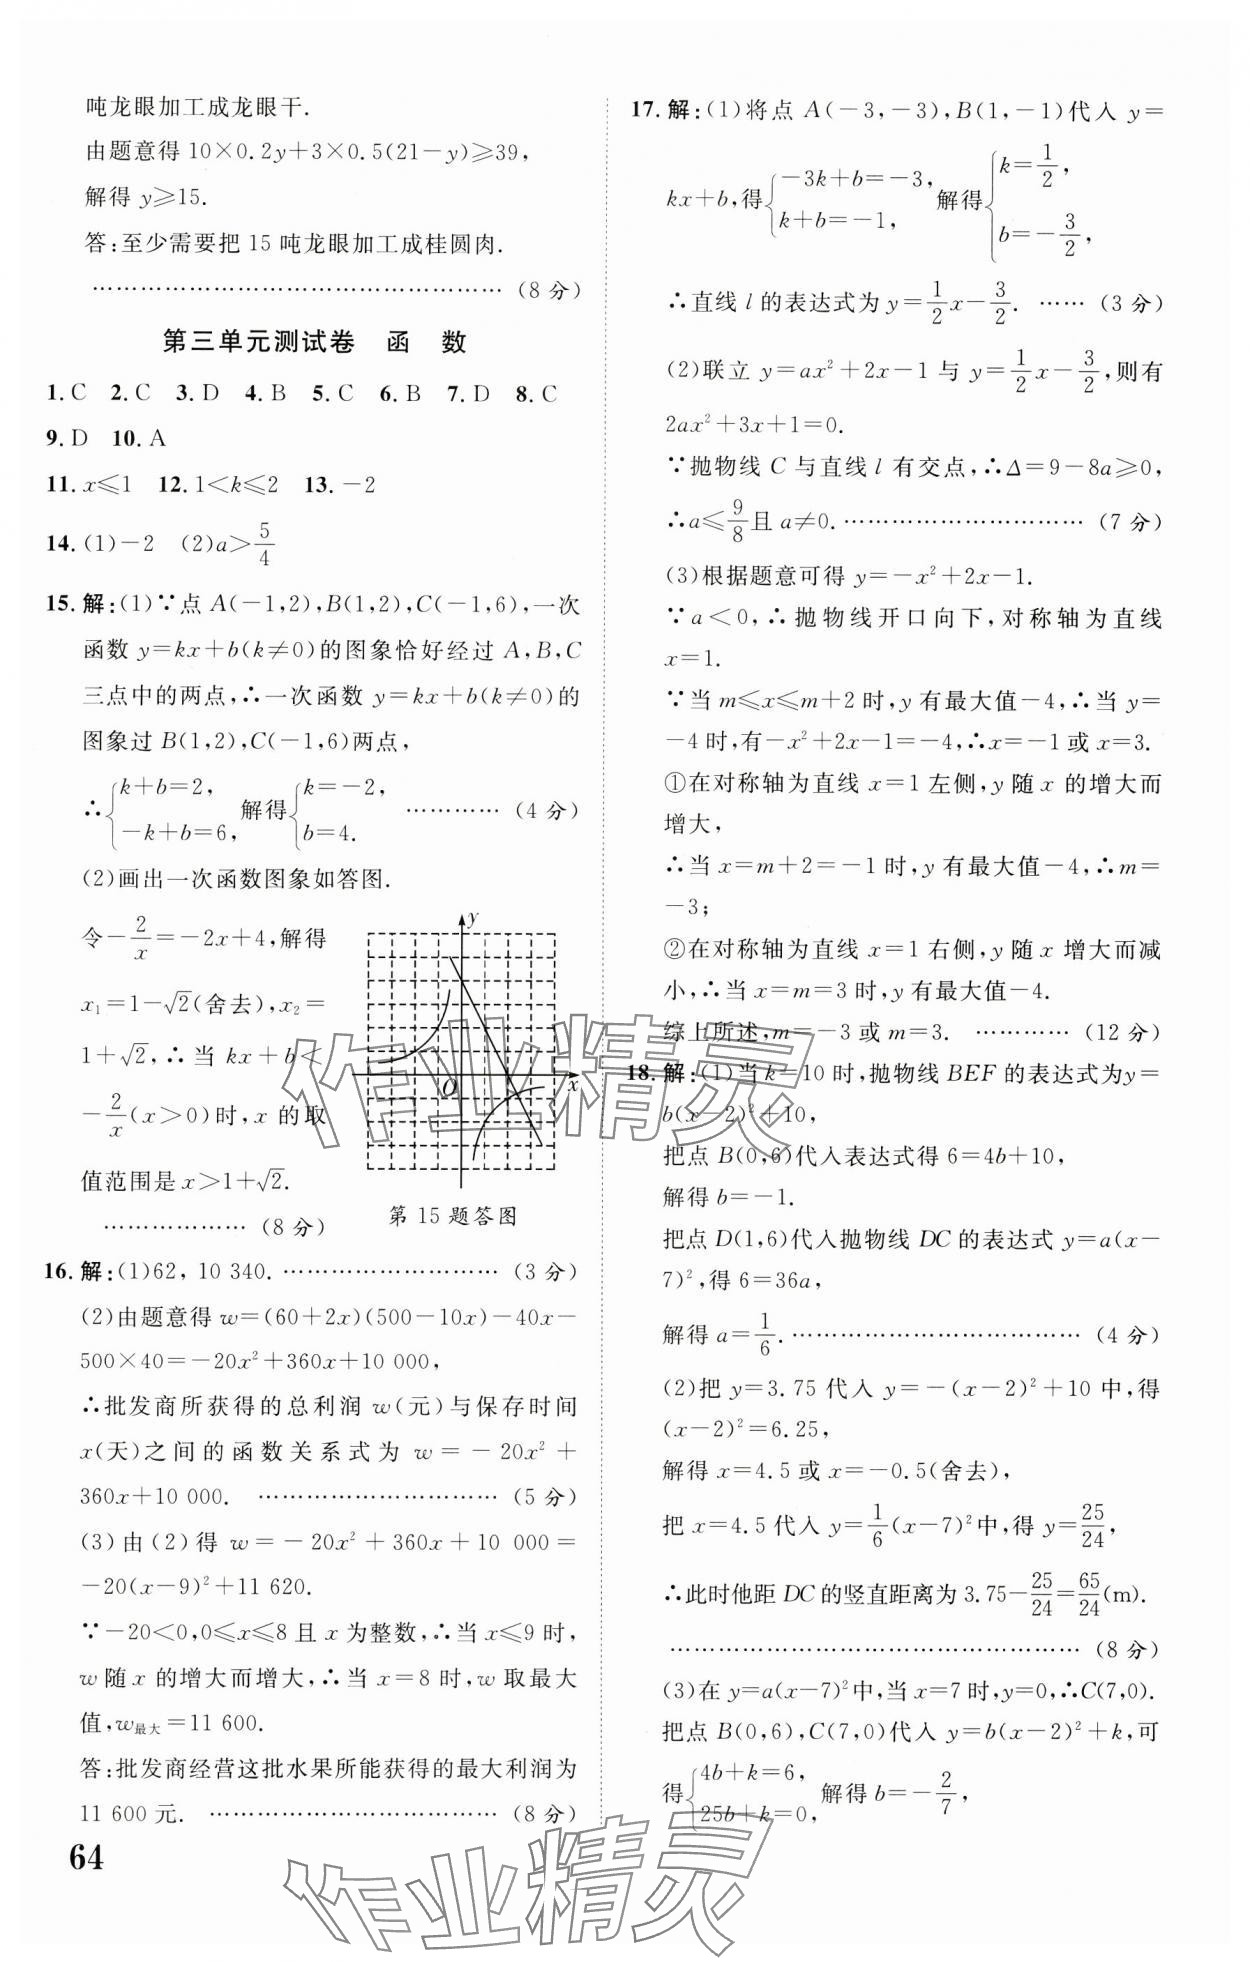 吨龙眼加工成龙眼干.
由题意得 10×0.2y+3×0.5(21-y)≥39,
解得 y≥15.
答:至少需要把 15 吨龙眼加工成桂圆肉.
…………………………………………… (8 分)
第三单元测试卷 函 数
1. C 2. C 3. D 4. B 5. C 6. B 7. D 8. C
9. D 10. A
11. x≤1 12. 1<k≤2 13. -2
14. (1)-2 (2)a>5/4
15. 解:(1)∵点 A(-1,2),B(1,2),C(-1,6),一次
函数 y=kx+b(k≠0)的图象恰好经过 A,B,C
三点中的两点,∴一次函数 y=kx+b(k≠0)的
图象过 B(1,2),C(-1,6)两点,
∴{k+b=2, -k+b=6, 解得{k=-2, b=4. ………… (4 分)
(2)画出一次函数图象如答图.
令-2/x=-2x+4,解得
x₁=1-√2(舍去),x₂=
1+√2,∴当 kx+b<
-2/x(x>0)时,x 的取
值范围是 x>1+√2.
……………… (8 分)
y
O
x
第 15 题答图
16. 解:(1)62, 10 340. ……………………… (3 分)
(2)由题意得 w=(60+2x)(500-10x)-40x-
500×40=-20x²+360x+10 000,
∴批发商所获得的总利润 w(元)与保存时间
x(天)之间的函数关系式为 w=-20x²+
360x+10 000. ………………………… (5 分)
(3)由(2)得 w=-20x²+360x+10 000=
-20(x-9)²+11 620.
∵-20<0,0≤x≤8 且 x 为整数,∴当 x≤9 时,
w 随 x 的增大而增大,∴当 x=8 时,w 取最大
值,w最大=11 600.
答:批发商经营这批水果所能获得的最大利润为
11 600 元. ……………………………… (8 分)
64
17. 解:(1)将点 A(-3,-3),B(1,-1)代入 y=
kx+b,得{-3k+b=-3, k+b=-1, 解得{k=1/2, b=-3/2,
∴直线 l 的表达式为 y=1/2x-3/2. …… (3 分)
(2)联立 y=ax²+2x-1 与 y=1/2x-3/2,则有
2ax²+3x+1=0.
∵抛物线 C 与直线 l 有交点,∴Δ=9-8a≥0,
∴a≤9/8且 a≠0. ………………………… (7 分)
(3)根据题意可得 y=-x²+2x-1.
∵a<0,∴抛物线开口向下,对称轴为直线
x=1.
∵当 m≤x≤m+2 时,y 有最大值-4,∴当 y=
-4 时,有-x²+2x-1=-4,∴x=-1 或 x=3.
①在对称轴为直线 x=1 左侧,y 随 x 的增大而
增大,
∴当 x=m+2=-1 时,y 有最大值-4,∴m=
-3;
②在对称轴为直线 x=1 右侧,y 随 x 增大而减
小,∴当 x=m=3 时,y 有最大值-4.
综上所述,m=-3 或 m=3. ………… (12 分)
18. 解:(1)当 k=10 时,抛物线 BEF 的表达式为y=
b(x-2)²+10,
把点 B(0,6)代入表达式得 6=4b+10,
解得 b=-1.
把点 D(1,6)代入抛物线 DC 的表达式 y=a(x-
7)²,得 6=36a,
解得 a=1/6. ……………………………… (4 分)
(2)把 y=3.75 代入 y=-(x-2)²+10 中,得
(x-2)²=6.25,
解得 x=4.5 或 x=-0.5(舍去),
把 x=4.5 代入 y=1/6(x-7)²中,得 y=25/24,
∴此时他距 DC 的竖直距离为 3.75-25/24=65/24(m).
…………………………………………… (8 分)
(3)在 y=a(x-7)²中,当 x=7 时,y=0,∴C(7,0).
把点 B(0,6),C(7,0)代入 y=b(x-2)²+k,可
得{4b+k=6, 25b+k=0, 解得 b=-2/7,
作业精灵
作业精灵